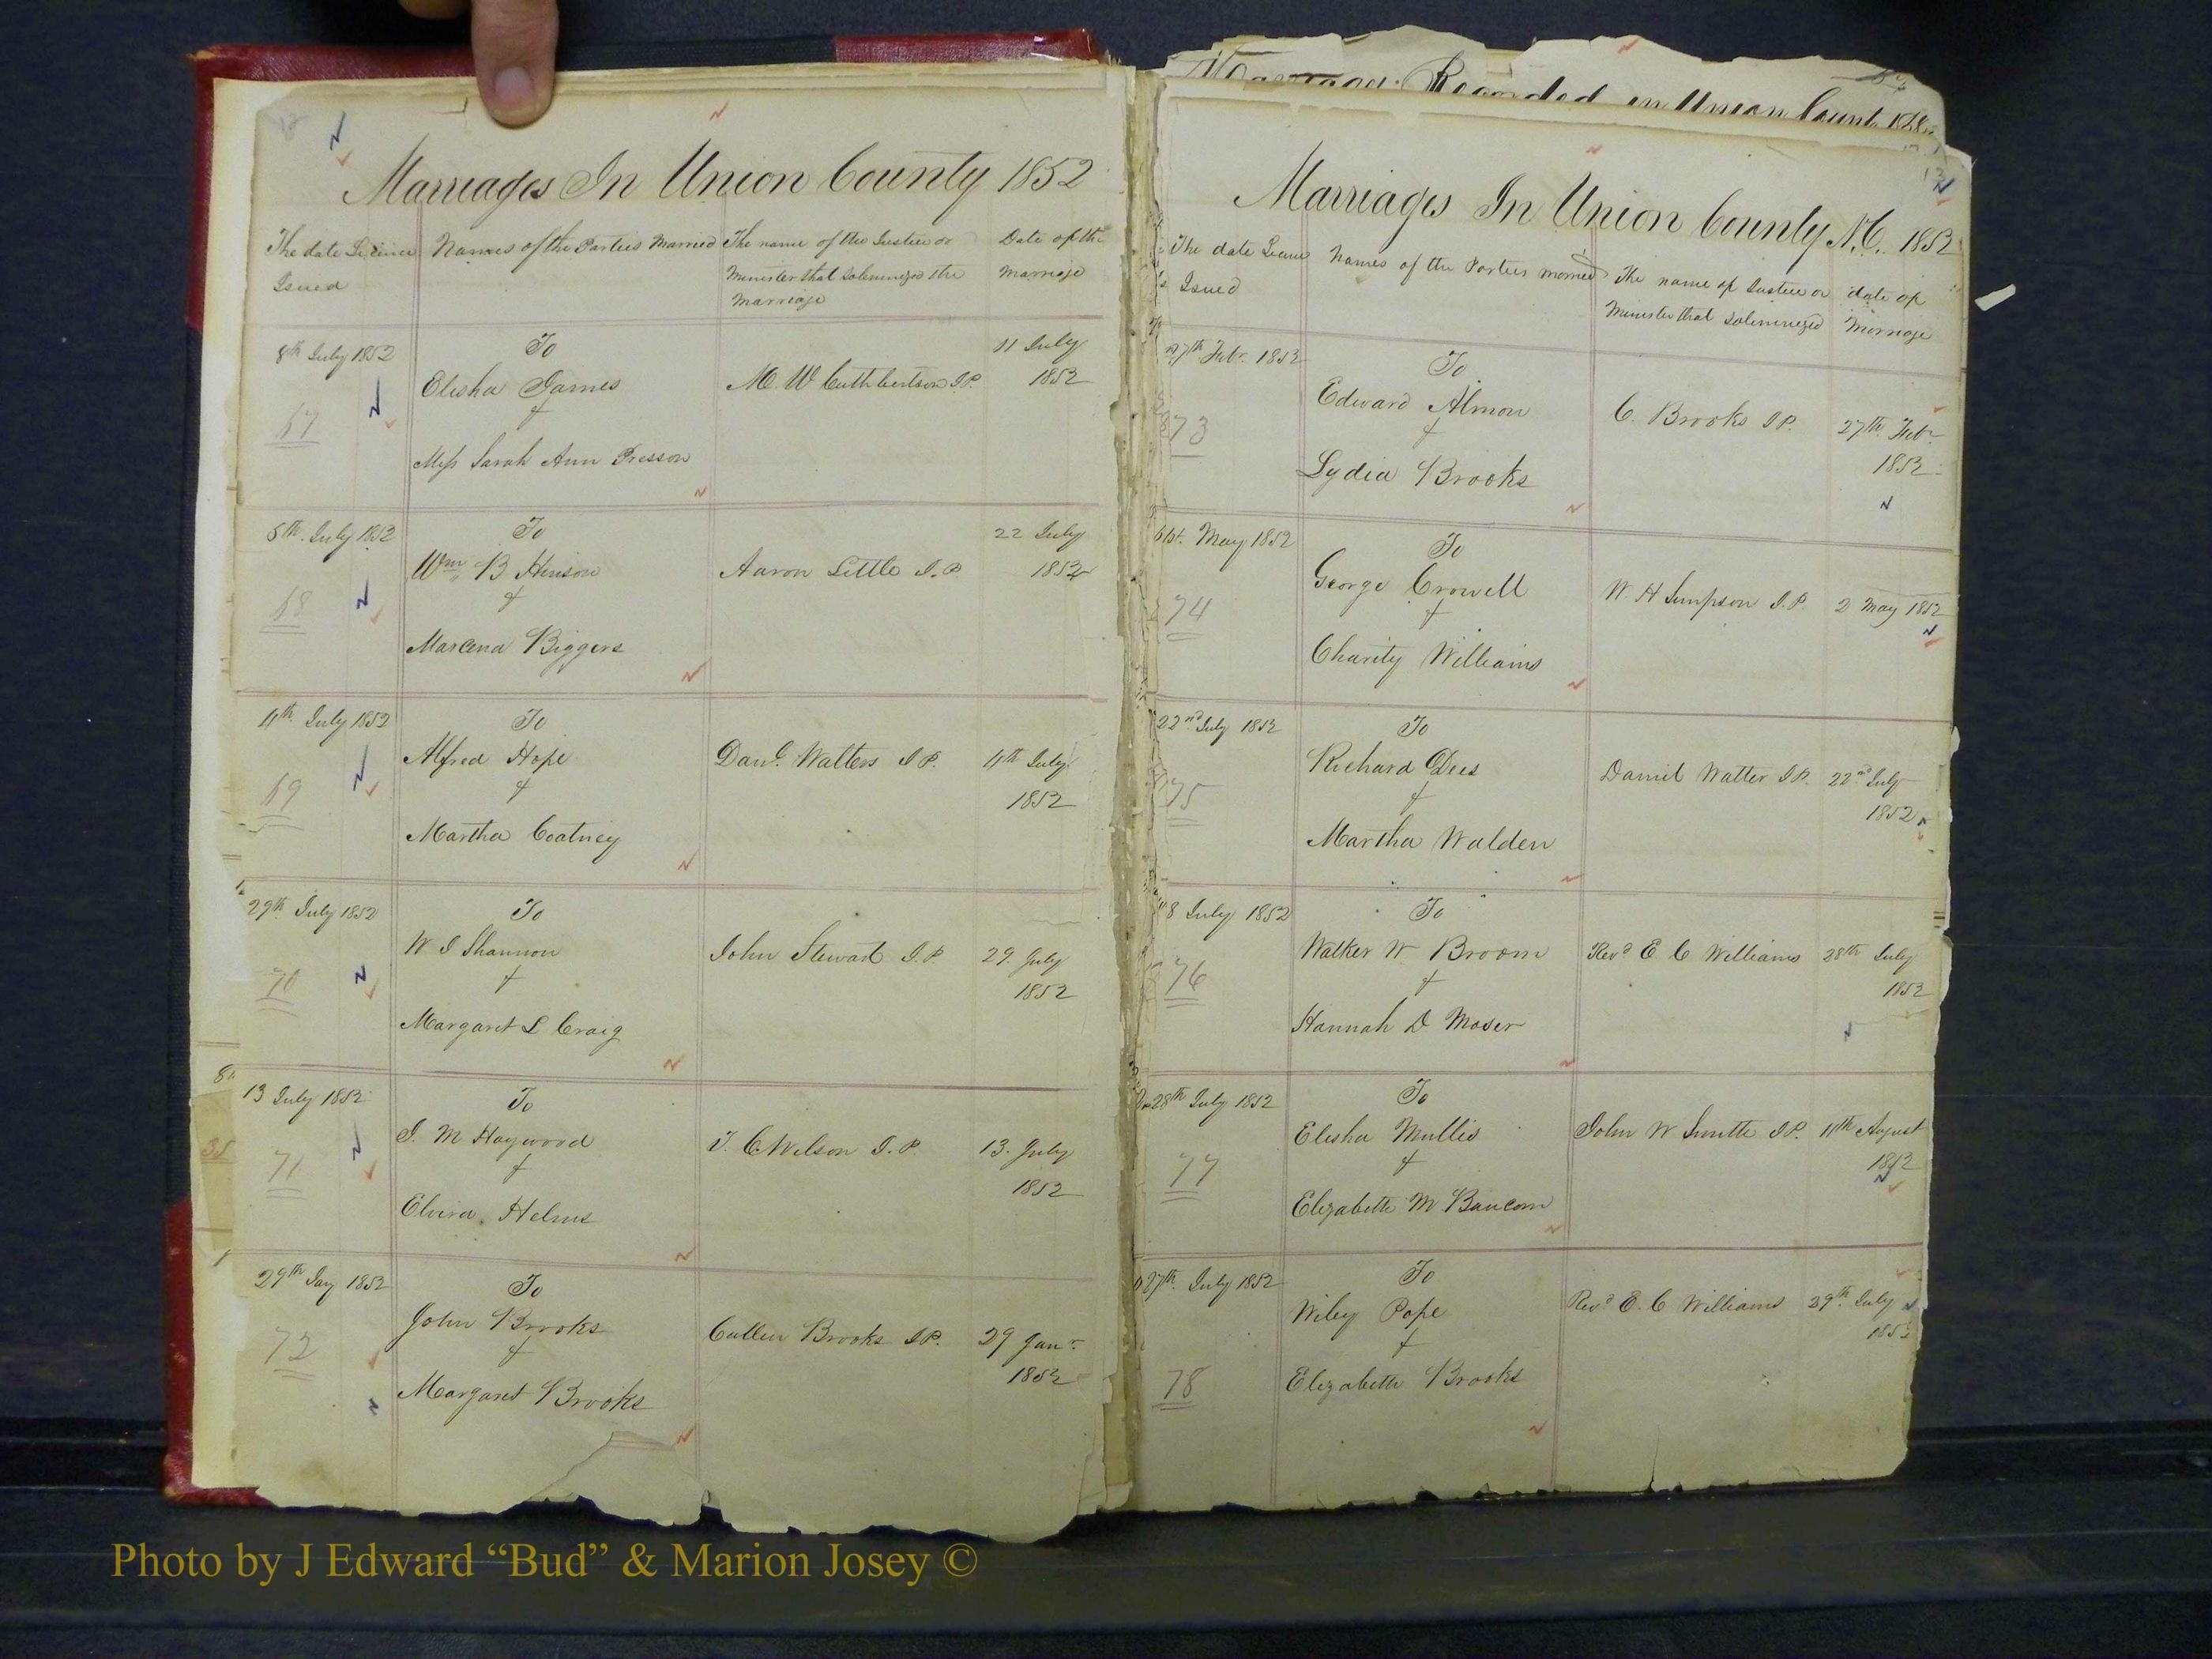 Marriages In Union County 1852
The date Licence Issued
Names of the Parties Married
The name of the Justice or Minister that solemnized the marriage
Date of the marriage
8th July 1852
67
To
Elisha James
&
Miss Sarah Ann Presson
M. W Cuthbertson J.P.
11 July
1852
5th. July 1852
68
To
Wm B Hinson
&
Marcena Biggers
Aaron Little J.P
22 July
1852
11th July 1852
69
To
Alfred Hope
&
Martha Coatney
Danl. Walters J P.
11th July
1852
29th July 1852
70
To
W J Shannon
&
Margaret L Craig
John Stewart J.P.
29. July
1852
13 July 1852
71
To
J. M Haywood
&
Elvira Helms
T. C Wilson J.P.
13. July
1852
29th Jay 1852
72
To
John Brooks
&
Margaret Brooks
Cullen Brooks J.P.
29 Janr
1852
Marriages In Union County N.C. 1852
Issued
Names of the Parties married
The name of Justice or
Minister that solemnized
date of
Marriage
27th Febr. 1852
73
To
Edward Almon
&
Lydia Brooks
C. Brooks J P.
27th Febr
1852
1st. May 1852
74
To
George Crowell
&
Charity Williams
W. H Simpson J.P.
2 May 1852
22nd July 1852
75
To
Richard Dees
&
Martha Walden
Daniel Walter J.P.
22nd July
1852
8 July 1852
76
To
Walker W Broom
&
Hannah D Moser
Revd E C Williams
28th July
1852
28th July 1852
77
To
Elisha Mullis
&
Elizabeth M Baucom
John W Smith J.P.
11th August
1852
27th. July 1852
78
To
Wiley Pope
&
Elizabeth Brooks
Revd E. C Williams
29th. July
1852
Photo by J Edward “Bud” & Marion Josey ©